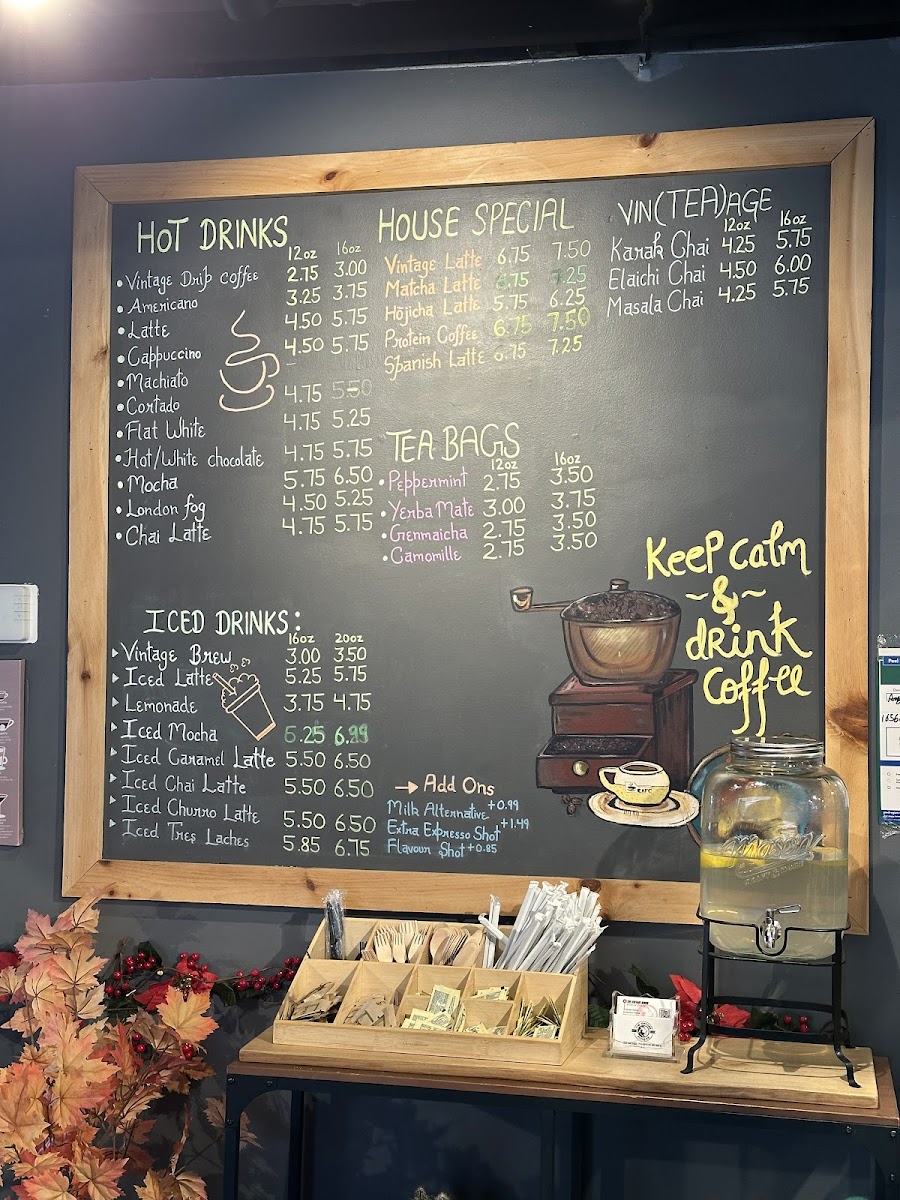 HOT DRINKS
12oz 16oz
• Vintage Drip coffee 2.75 3.00
• Americano 3.25 3.75
• Latte 4.50 5.75
• Cappuccino 4.50 5.75
• Machiato -
• Cortado 4.75 5.50
• Flat White 4.75 5.25
• Hot/White chocolate 4.75 5.75
• Mocha 5.75 6.50
• London fog 4.50 5.25
• Chai Latte 4.75 5.75
ICED DRINKS:
16oz 20oz
Vintage Brew 3.00 3.50
Iced Latte 5.25 5.75
Lemonade 3.75 4.75
Iced Mocha 6.99
Iced Caramel Latte 5.50 6.50
Iced Chai Latte 5.50 6.50
Iced Churro Latte 5.50 6.50
Iced Tres Laches 5.85 6.75
HOUSE SPECIAL
Vintage Latte 6.75 7.50
Matcha Latte 7.25
Hojicha Latte 5.75 6.25
Protein Coffee 6.75 7.50
Spanish Latte 7.25
TEA BAGS
12oz 16oz
• Peppermint 2.75 3.50
• Yerba Mate 3.00 3.75
• Genmaicha 2.75 3.50
• Camomille 2.75 3.50
→ Add Ons
Milk Alternative +0.99
Extra Expresso Shot +1.49
Flavour Shot +0.85
VIN(TEA)AGE
12oz 16oz
Karak Chai 4.25 5.75
Elaichi Chai 4.50 6.00
Masala Chai 4.25 5.75
Keep calm
~&~
drink
coffee